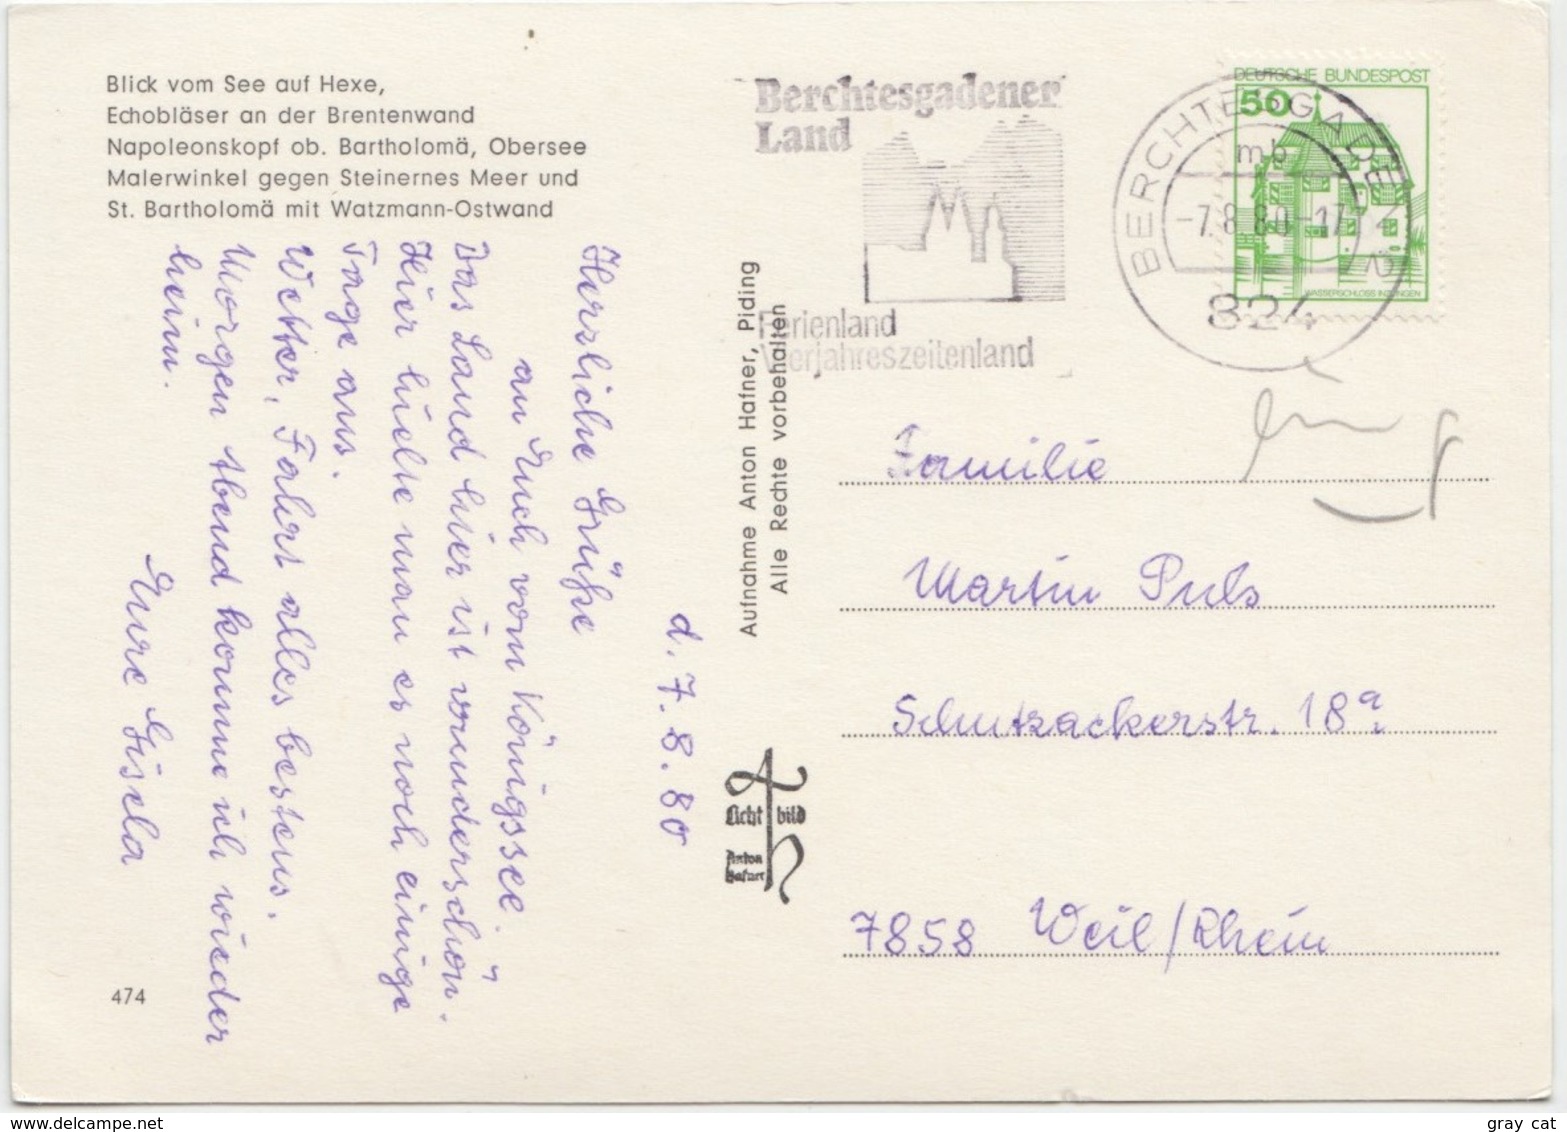 Blick vom See auf Hexe,
Echobläser an der Brentenwand
Napoleonskopf ob. Bartholomä, Obersee
Malerwinkel gegen Steinernes Meer und
St. Bartholomä mit Watzmann-Ostwand
d. 7. 8. 80
Herzliche Grüße
an Euch vom Königssee.
Das Land hier ist wunderschön.
Hier hielte man es noch einige
Tage aus.
Wetter, Fahrt alles bestens.
Morgen Abend komme ich wieder
heim.
Eure Gisela
474
Aufnahme Anton Hafner, Piding
Alle Rechte vorbehalten
Licht bild
Anton
Hafner
Berchtesgadener
Land
Ferienland
Vierjahreszeitenland
BERCHTESGADEN
mb
-7.8.80-17
824
DEUTSCHE BUNDESPOST
50
WASSERSCHLOSS INZLINGEN
Familie
Martin Puls
Schutzackerstr. 18a
7858 Weil/Rhein
gray cat